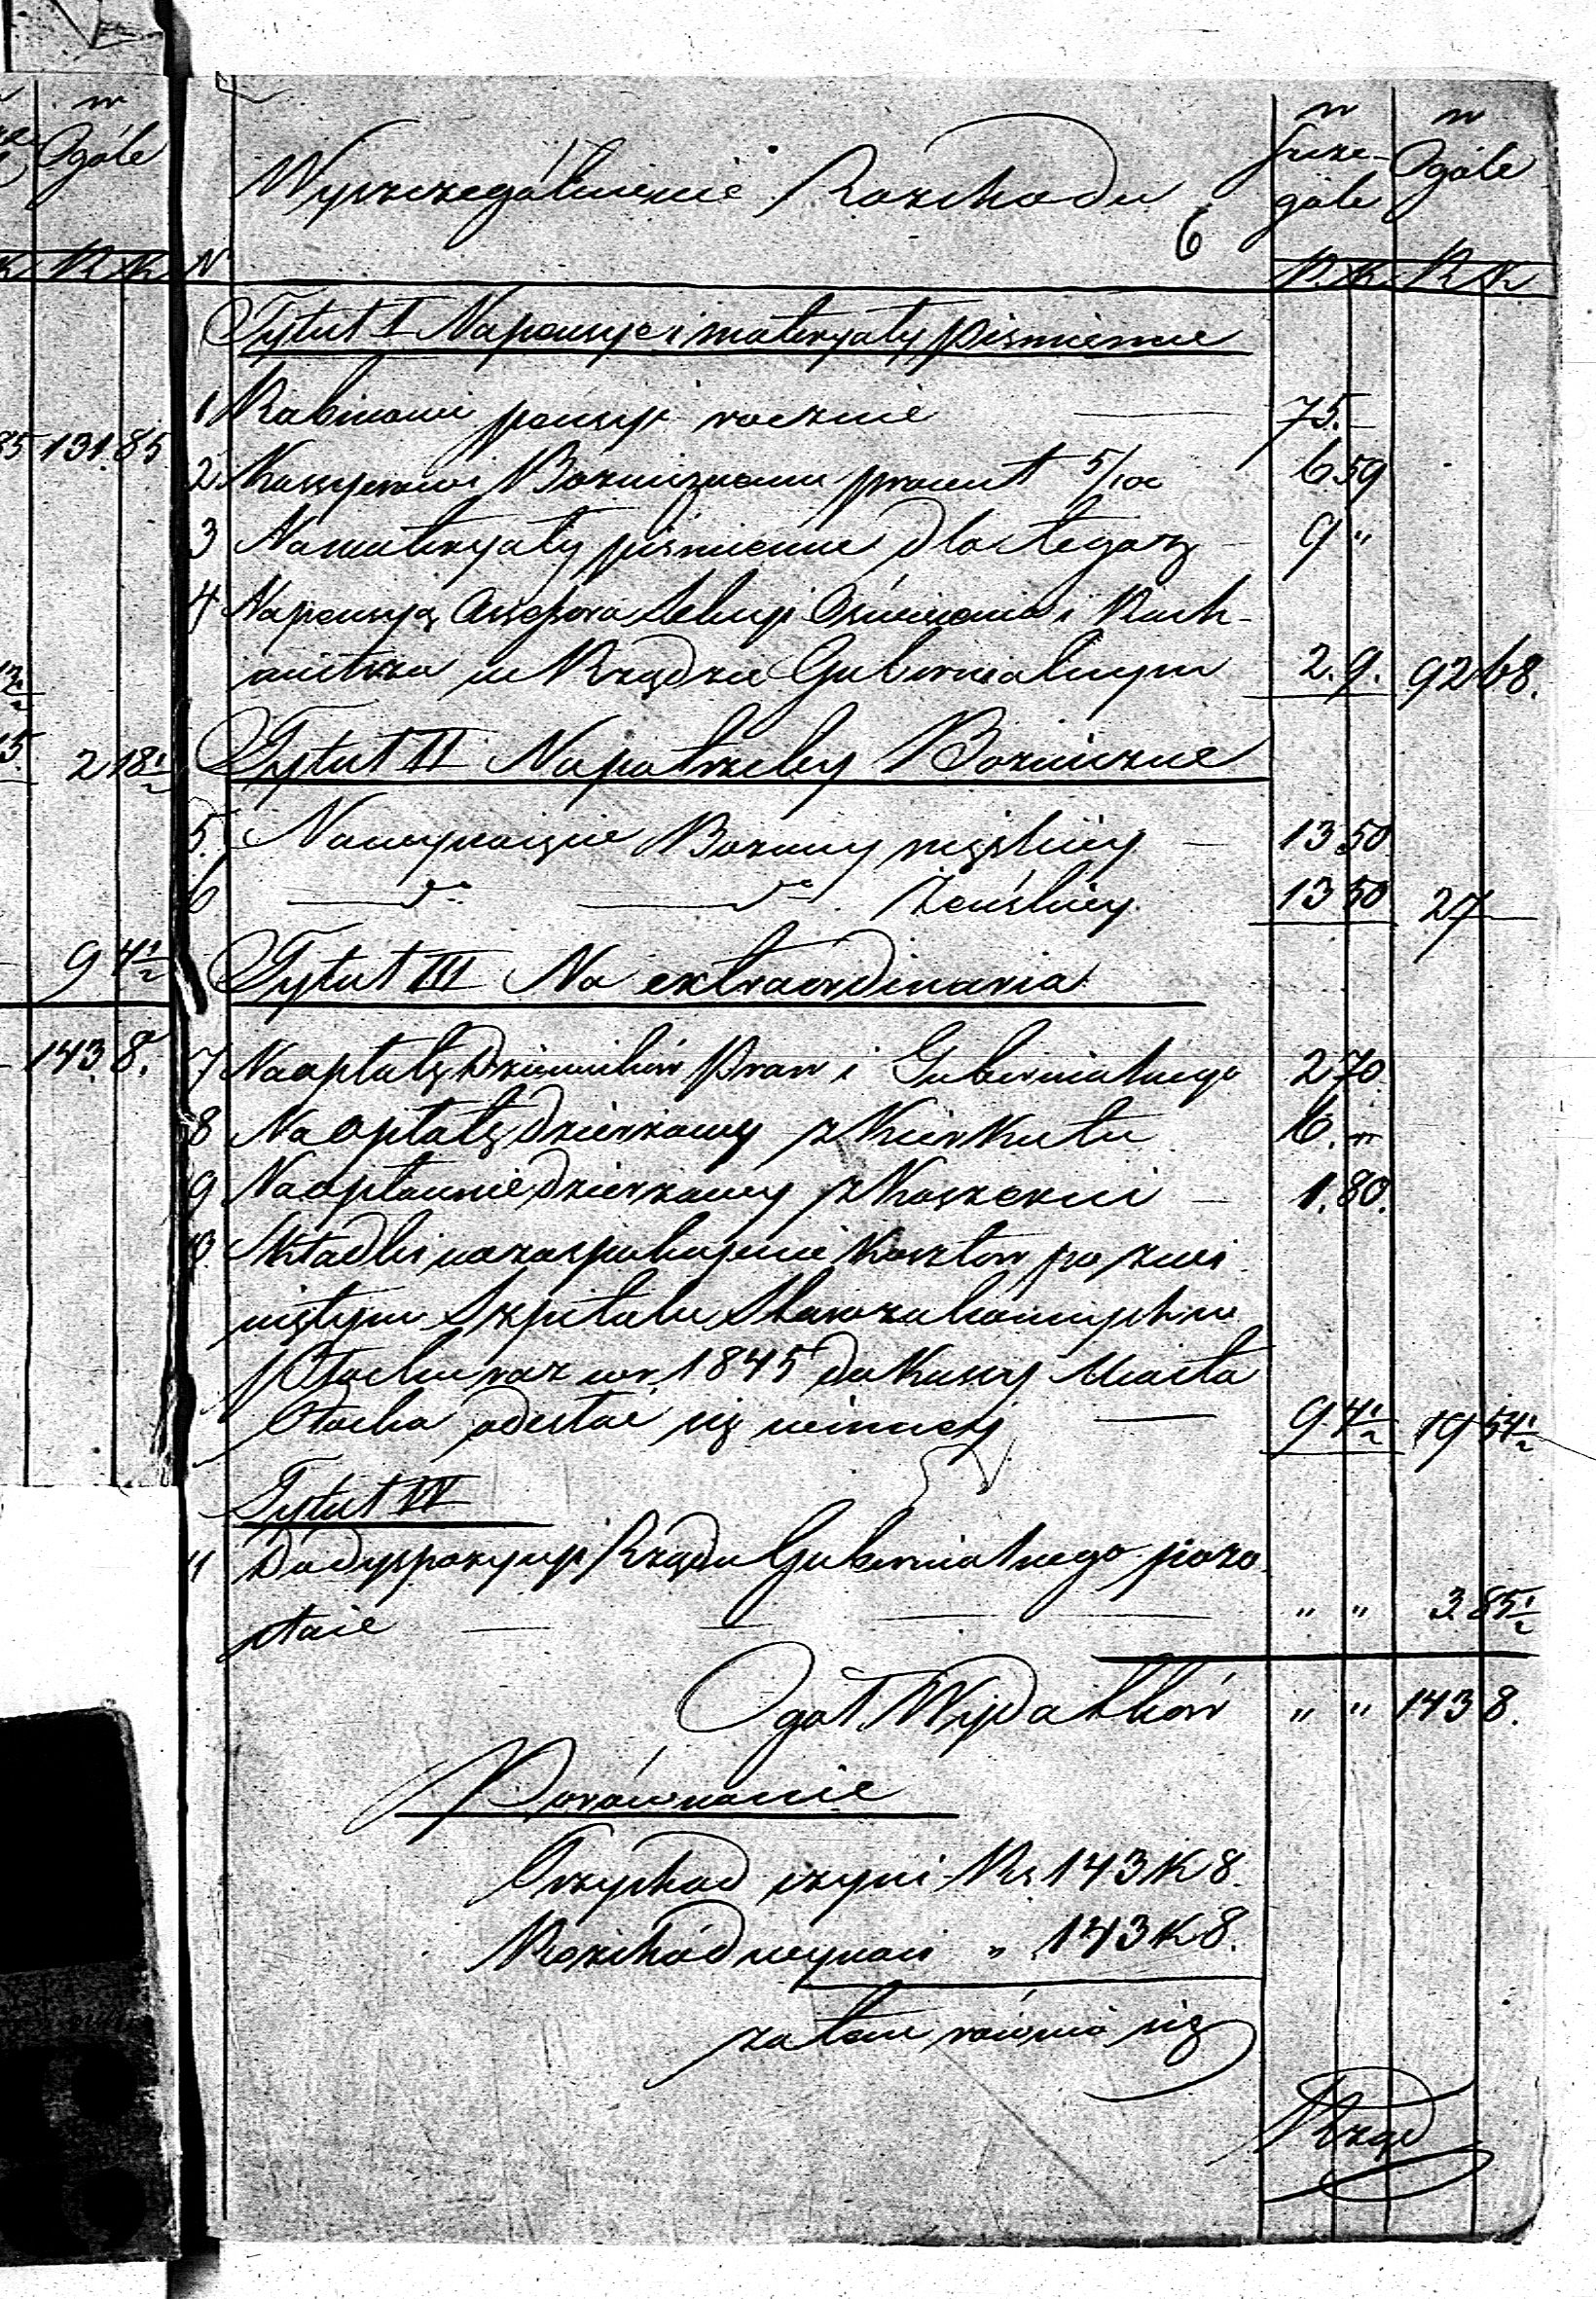 w
Ogóle
R K
131.85
2 18½
9 4½
143. 8.
Wyszczególnienie Rozchodu
w Szcze-
góle
w
Ogóle
6
N
R. K. R K.
Tytuł I Na pensye i materyały piśmienne
1 Rabinowi pensyi rocznie — 75. —
2 Kassyerowi Bożnicznemu procent 5/100 6 59
3 Na materyały piśmienne dla tegoż — 9 "
4 Na pensyą Assesora Sekcyi Oświecenia i Rach-
mistrza w Rządzie Gubernialnym 2. 9. 92 68.
Tytuł II Na potrzeby Bożnicze
5. Na wynajęcie Bożnicy męskiey — 13 50
6 — do — do Żeńskiey. 13 50 27 —
Tytuł III Na extraordinaria
7 Na opłatę Dzienników Praw i Gubernialnego 2 70
8 Na opłatę dzierżawy z Kierkutu 6. "
9 Na opłacenie dzierżawy z Koszerni — 1. 80.
10. Składki na zaspokojenie kosztów po zwi
niętym Szpitalu Starozakonnych w
Płocku raz w r. 1845 do Kassy Miasta
Płocka odesłać się winney — 9 4½ 19 54½
Tytuł IV
11 Do dyspozycyi Rządu Gubernialnego pozo
staie — " " 3 85½
Ogół Wydatków " " 143 8.
Porównanie
Przychód czyni Rs 143 K 8.
Rozchód wynosi " 143 K 8.
zatem równa się
Rząd